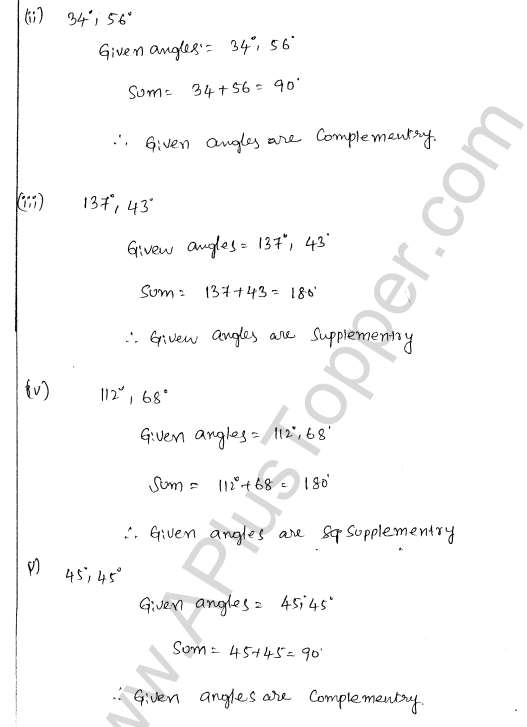 (ii) 34°, 56°
Given angles:= 34°, 56°
Sum= 34+56= 90°
∴ Given angles are Complementry.
(iii) 137°, 43°
Given angles= 137°, 43°
Sum= 137+43= 180°
∴ Given angles are Supplementry
(v) 112°, 68°
Given angles= 112°, 68°
Sum = 112°+68 = 180°
∴ Given angles are Sq Supplementry
v) 45°, 45°
Given angles= 45, 45°
Sum = 45+45= 90°
∴ Given angles are Complementry.
www.APlusTopper.com